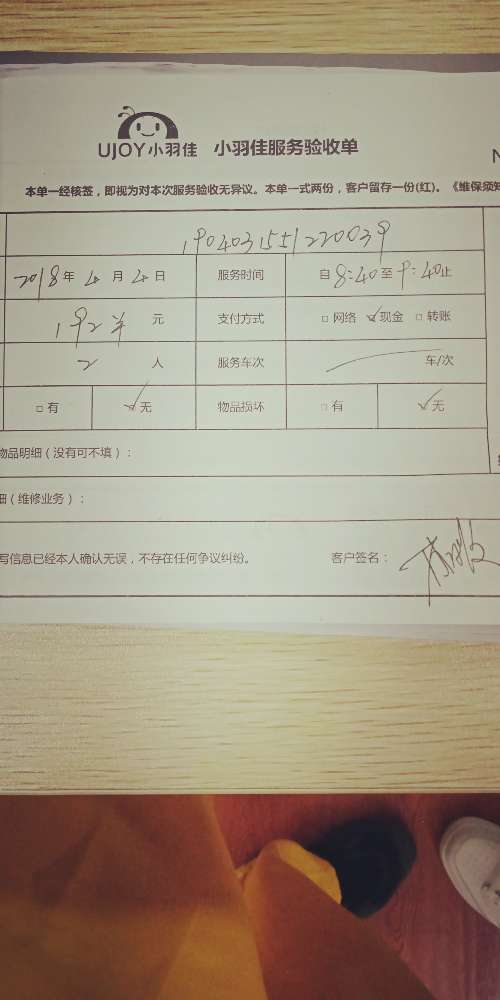 UJOY小羽佳 小羽佳服务验收单
N
本单一经核签，即视为对本次服务验收无异议。本单一式两份，客户留存一份(红)。《维保须知
1904031551220039
2018年4月4日 服务时间 自8:40至9:40止
192 元 支付方式 □网络 ☑现金 □转账
2人 服务车次 车/次
□有 ☑无 物品损坏 □有 ☑无
物品明细（没有可不填）：
细（维修业务）：
写信息已经本人确认无误，不存在任何争议纠纷。 客户签名：